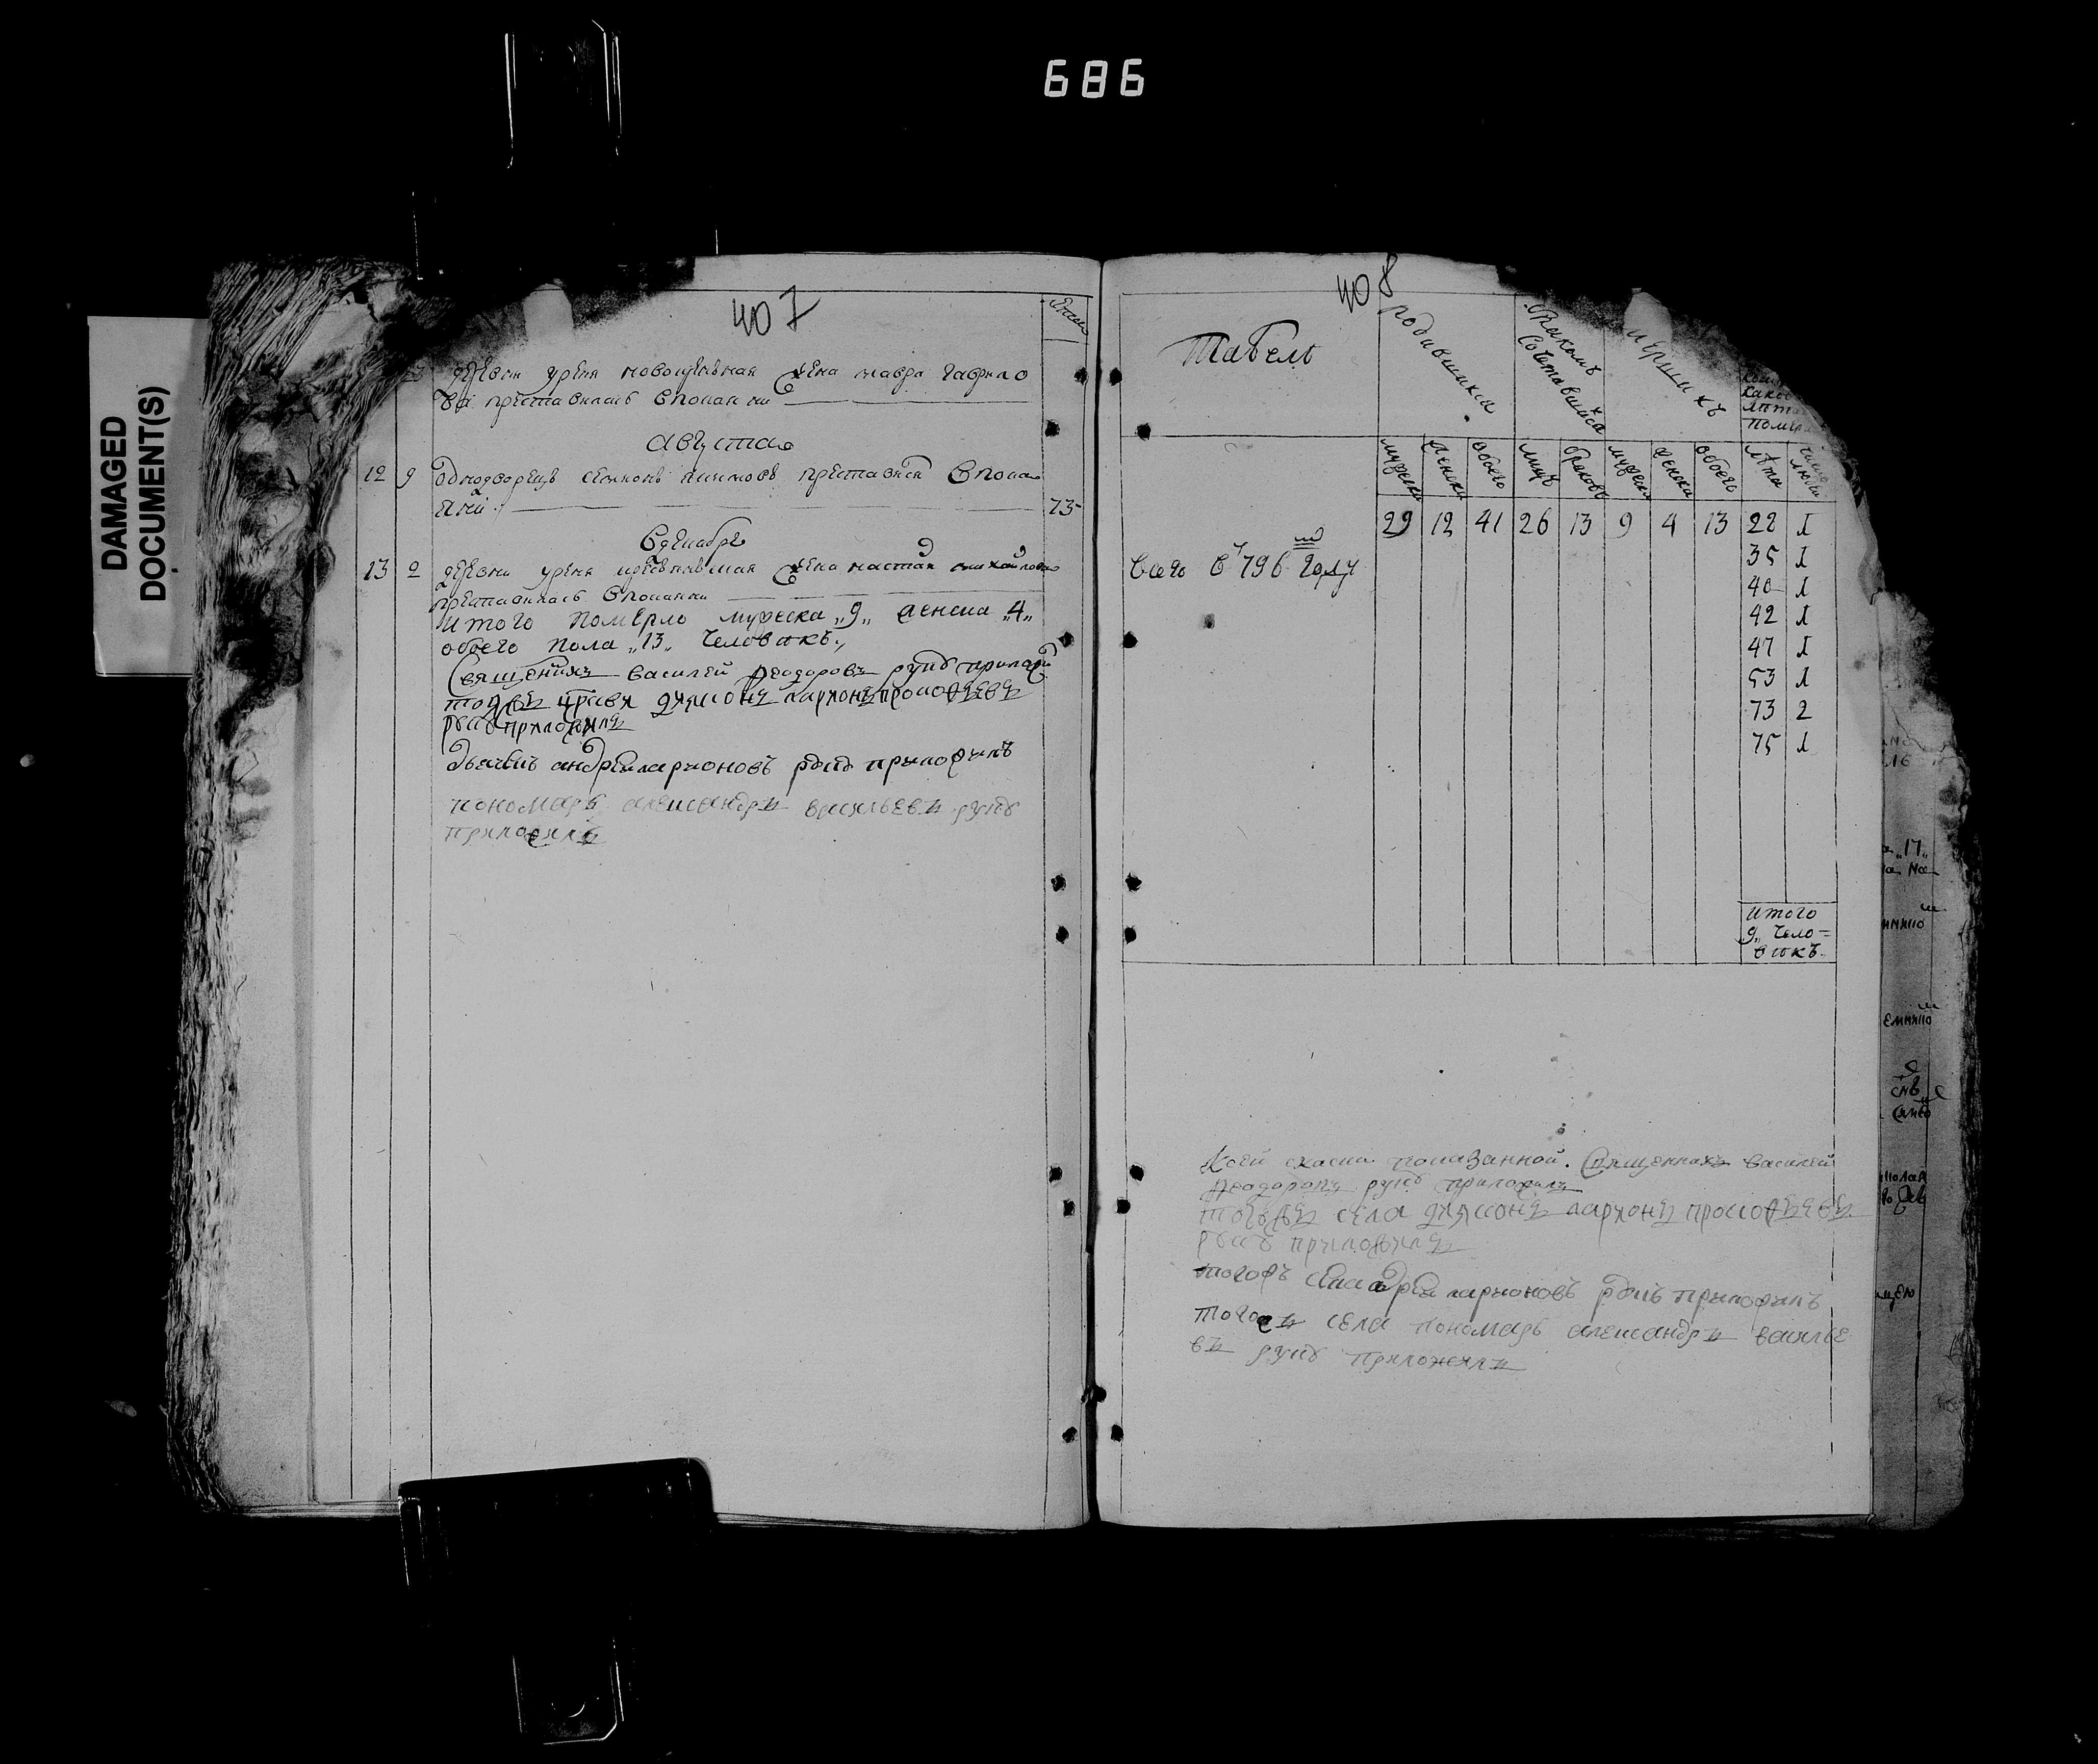 686
DAMAGED
DOCUMENT(S)
407
деревни урени новокрещеная жена мавра гаврило
ва преставилась в покаянии
августа
12 9 однодворецъ преставися в покая
нии 73
декабря
13 2 деревни урени жена настая михайлова
преставилась в покаянии
итого померло мужеска „9„ женска „4„
обоего пола „13„ человекъ.
Священникъ василей Феодоровъ руку приложи
диаконъ ларионъ прокофьевъ
руку приложилъ
дьячекъ андрей ларионовъ руку приложилъ
пономарь александръ васильевъ руку
приложилъ
408
Табель
родившихся
бракомъ
сочетавшихся
мершихъ
какова
лета
помер
мужеска женска обоего лицъ браковъ мужеска женска обоего лета число
29 12 41 26 13 9 4 13 22 1
всего в 796 году
35 1
40 1
42 1
47 1
53 1
73 2
75 1
итого
9„ чело=
векъ.
показанной. Священникъ василей
Феодоровъ руку приложилъ
села диаконъ ларионъ прокофьевъ
руку приложилъ
тогожъ села андрей ларионовъ руку приложилъ
тогожъ села пономарь александръ василье
въ руку приложилъ